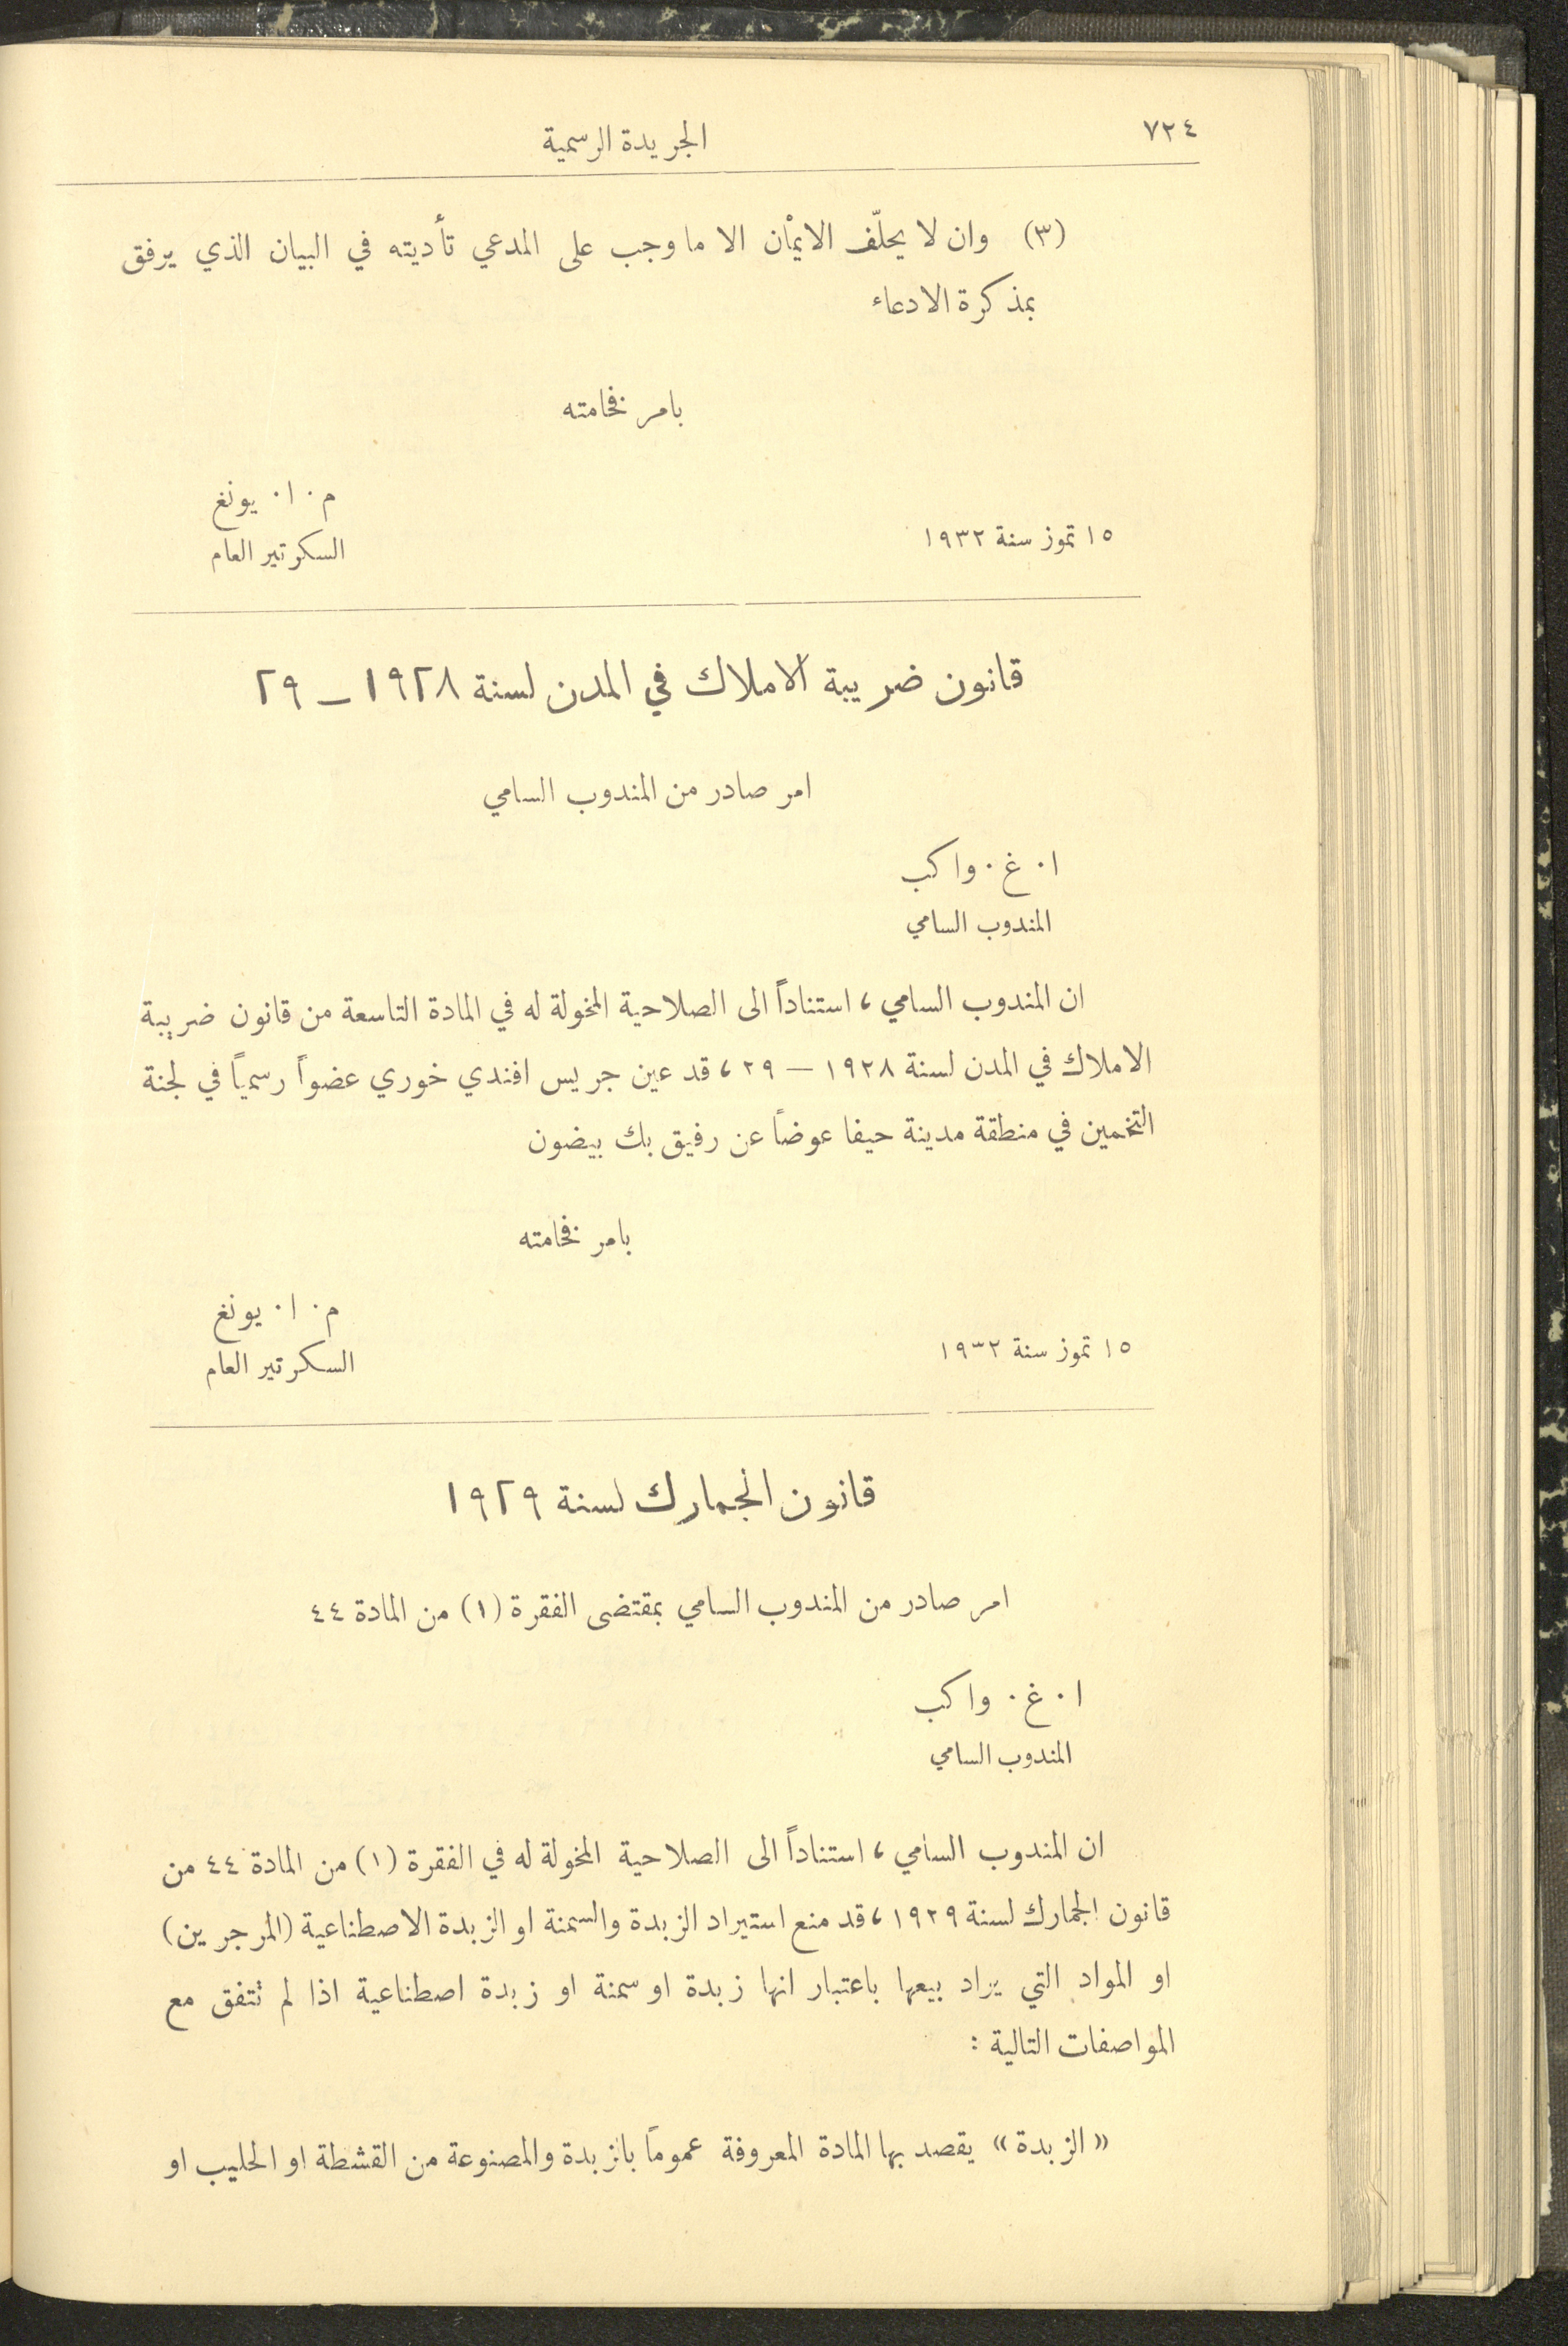 ٧٢٤
الجريدة الرسمية
(٣) وان لا يحلّف الايمان الا ما وجب على المدعي تأديته في البيان الذي يرفق
بمذكرة الادعاء
بامر فخامته
م. ا. يونغ
١٥ تموز سنة ١٩٣٢
السكرتير العام
قانون ضريبة الاملاك في المدن لسنة ١٩٢٨ – ٢٩
امر صادر من المندوب السامي
ا. غ. واكب
المندوب السامي
ان المندوب السامي، استناداً الى الصلاحية المخولة له في المادة التاسعة من قانون ضريبة
الاملاك في المدن لسنة ١٩٢٨ — ٢٩، قد عين جريس افندي خوري عضواً رسمياً في لجنة
التخمين في منطقة مدينة حيفا عوضاً عن رفيق بك بيضون
بامر فخامته
م. ا. يونغ
١٥ تموز سنة ١٩٣٢
السكرتير العام
قانون الجمارك لسنة ١٩٢٩
امر صادر من المندوب السامي بمقتضى الفقرة (١) من المادة ٤٤
ا. غ. واكب
المندوب السامي
ان المندوب السامي، استناداً الى الصلاحية المخولة له في الفقرة (١) من المادة ٤٤ من
قانون الجمارك لسنة ١٩٢٩، قد منع استيراد الزبدة والسمنة او الزبدة الاصطناعية (المرجرين)
او المواد التي يراد بيعها باعتبار انها زبدة او سمنة او زبدة اصطناعية اذا لم تتفق مع
المواصفات التالية :
«الزبدة» يقصد بها المادة المعروفة عموماً بالزبدة والمصنوعة من القشطة او الحليب او